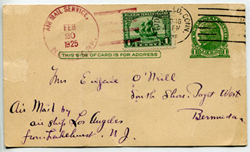 AIR MAIL SERVICE,
FEB
20
1925
CONN.
THIS SIDE OF CARD IS FOR ADDRESS
Mrs Eugene O'Neill
South Shore, Paget West
Bermuda
Air Mail by
air ship Los Angeles
from Lakehurst N. J.